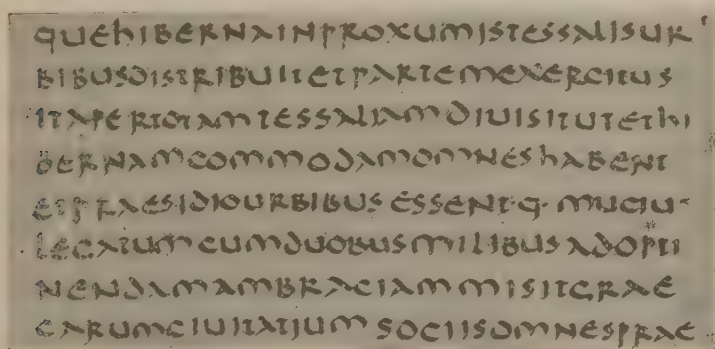 QUEHIBERNAINPROXUMISTESSALISUR
BIBUSDISTRIBUITETPARTEMEXERCITUS
ITAPERTOTAMTESSALIAMDIUISITUTETHI
BERNAMCOMMODAMOMNESHABENT
ETPRAESIDIOURBIBUSESSENT·Q·MUCIU
LEGATUMCUMDUOBUSMILIBUSADOPTI
NENDAMAMBRACIAMMISITGRAE
CARUMCIUITATIUMSOCIISOMNESPRAE